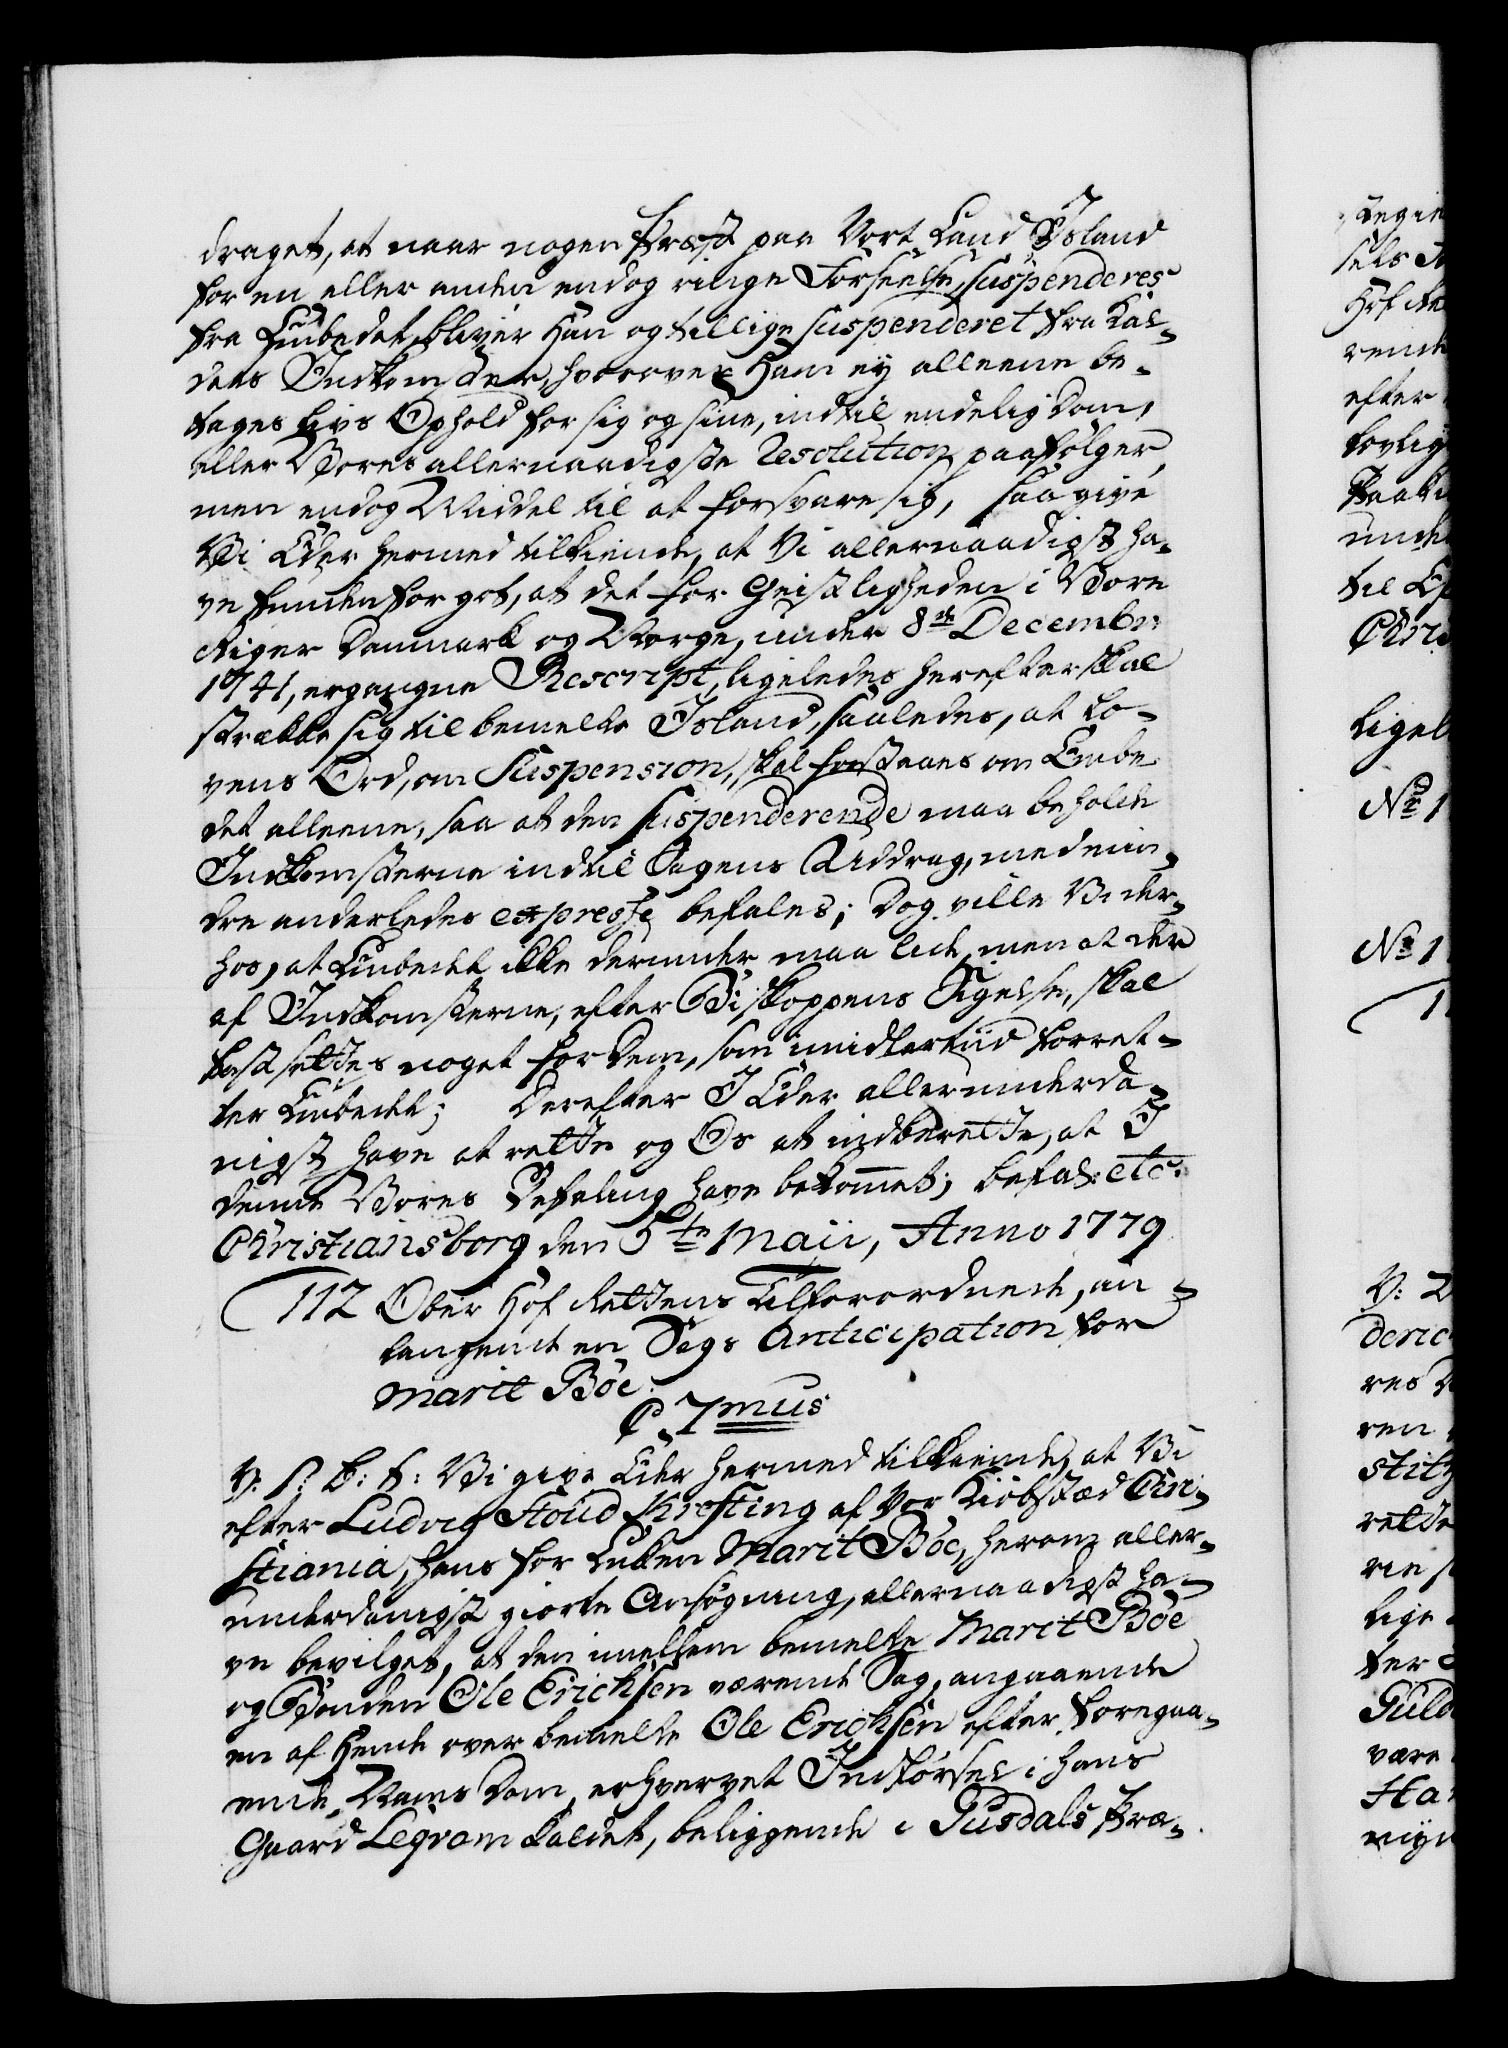 draget, at naar nogen Præst paa Vort Land Island
for en eller anden endog ringe Forseelse, suspenderes
fra Embedet, bliver Han og tillige suspenderet fra Kal-
dets Indkomster, hvorover Ham ey alleene be-
tages Livs Ophold for sig og sine, indtil endelig Dom,
eller Vores allernaadigste Resolution paafølger,
men endog Middel til at forsvare sig, saa give
Vi Eder hermed tilkiende, at Vi allernaadigst ha-
ve funden for got, at det for Geistligheden i Vore
Riger Danmark og Norge, under 8de Decembr:
1741, ergangne Rescript, ligeledes herefter skal
strække sig til bemelte Island, saaledes, at Lo-
vens Ord, om Suspension, skal forstaaes om Embe
det alleene, saa at den suspenderende maa beholde
Indkomsterne indtil Sagens Uddrag, med min-
dre anderledes expresse befales; Dog ville Vi der-
hos, at Embedet ikke derunder maa lide, men at der
af Indkomsterne, efter Biskoppens Sigelse, skal
fastsettes noget for Dem, som imidlertiid forret-
ter Embedet; Derefter I Eder allerunderda-
nigst have at rette og Os at indberette, at I
denne Vores Befaling have bekommet; befal: etc:
Christiansborg den 5te Maii, Anno 1779
112 Ober Hof Rettens Tilforordnede, an-
langende en Sags Anticipation for
Marit Böe.
C. 7mus
V: S: B: t: Vi give Eder hermed tilkiende, at Vi
efter Ludvig Stoud Kresting af Vor Kiøbstæd Chri-
stiania, hans for Enken Marit Böe, herom aller-
underdanigst giorte Ansøgning, allernaadigst ha-
ve bevilget, at den imellem bemelte Marit Böe
og Bonden Ole Erichsen værende Sag, angaaende
en af Hende over bemelte Ole Erichsen efter foregaa-
ende Dom, erhvervet Indførsel i hans
Gaard Legrom kaldet, beliggende i Gusdals Præ-